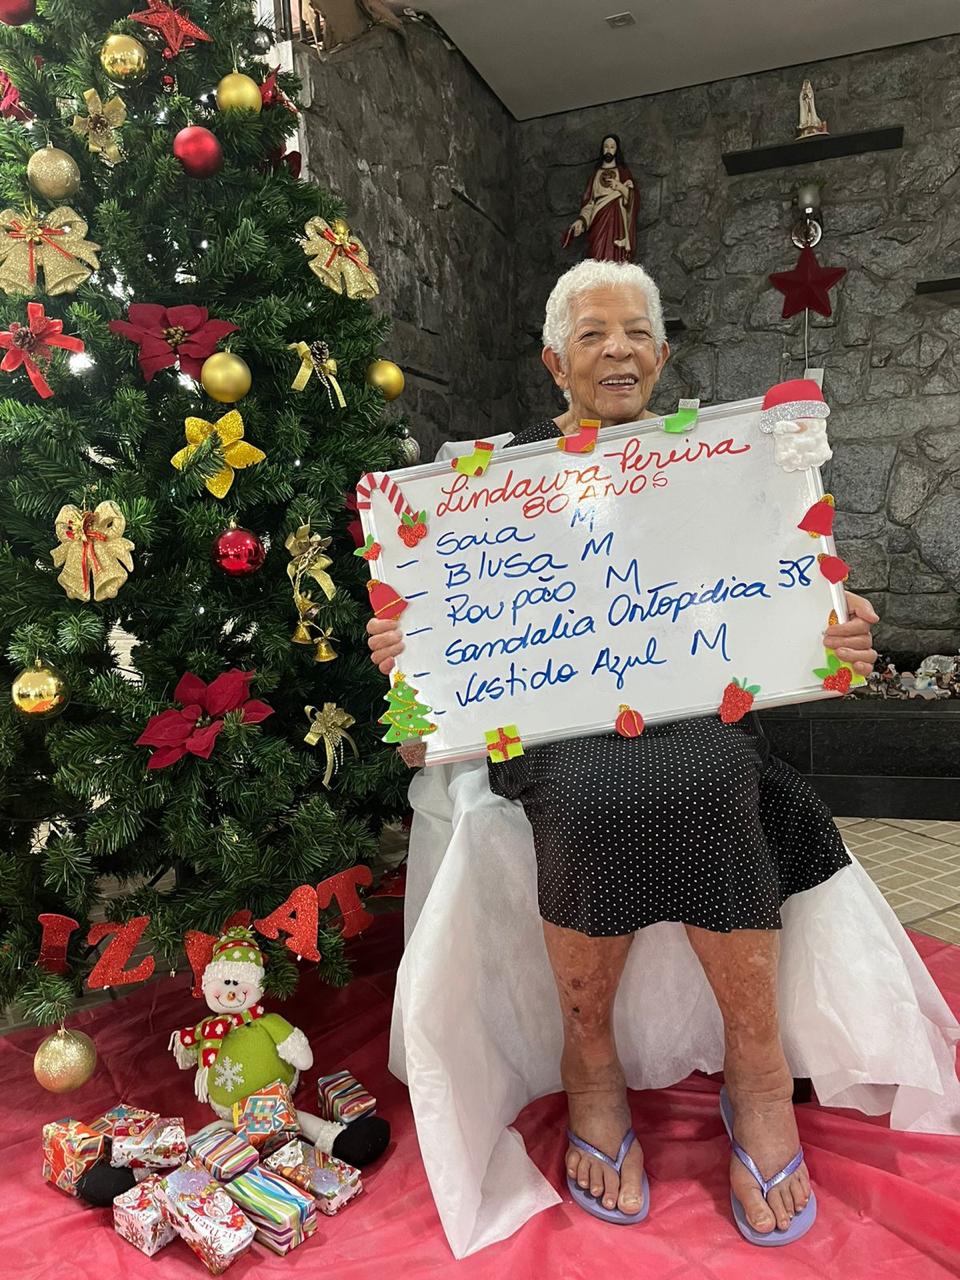 Lindaura Pereira
80 ANOS
- Saia M
- Blusa M
- Roupão M
- Sandalia Ortopidica 38
- Vestido Azul M
IZ NAT